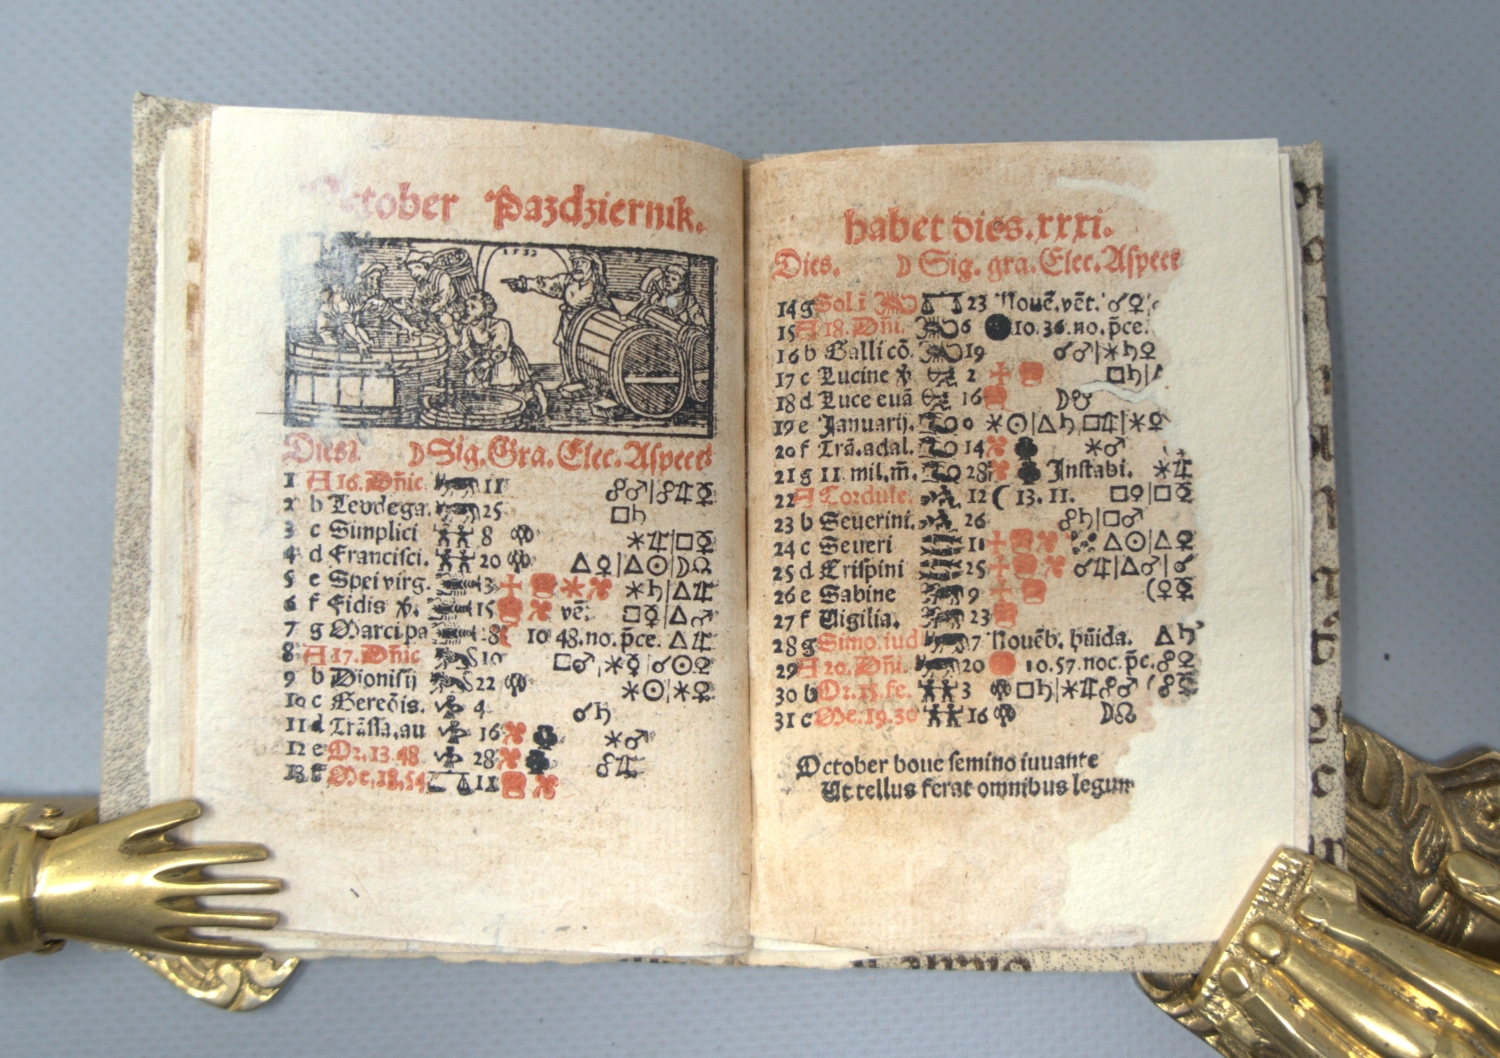 October Pazdziernik.
1533
Dies. ☽ Sig. Gra. Elec. Aspect⁹
1 A 16. Dñic. 11 ☍♂|☍♃☿
2 b Teodega. 25 □♄
3 c Simplici 8 ✶♃|□☿
4 d Francisci. 20 △♀|△☉|☽☊
5 e Spei virg. 3 ✶♄|△♃
6 f Fidis 15 vẽ. □☿|△♂
7 g Marci pa 18 10 48. no. p̃ce. △♃
8 A 17. Dñic 10 □♂|✶☿|☌☉♀
9 b Dionisij 22 ✶☉|✶♀
10 c Gereõis. 4 ☌♄
11 d Trãsla. au 16 ✶♂
12 e Or. 13. 48 28 ☍♃
13 f Oc. 18. 54 11
habet dies. xxxi.
Dies. ☽ Sig. gra. Elec. Aspect
14 g Sol. i 23 Nouẽ. vẽt. ☌♀
15 A 18. Dñi. 6 10. 36. no. p̃ce.
16 b Galli cõ. 19 ☌♂|✶♄♀
17 c Lucine 2 □♄|△
18 d Luce euã 16 ☽☋
19 e Januarij. 0 ✶☉|△♄|□♃|✶♀
20 f Trã. adal. 14 ✶♂
21 g 11 mil. m̃. 28 Instabi. ✶♃
22 A Cordule. 12 ☾ 13. 11. □♀|□☿
23 b Seuerini. 26 ☍♄|□♂
24 c Seueri 11 △☉|△♀
25 d Crispini 25 ☌♃|△♂|☌
26 e Sabine 9 (♀☿
27 f Uigilia. 23
28 g Simo. iud 7 Nouẽb. hũida. △♄
29 A 20. Dñi. 20 10. 57. noc. p̃c. ☍♀
30 b Or. 15. fe. 3 □♄|✶♃|☍♂ (☍☿
31 c Oc. 19. 30 16 ☽☊
October boue semino iuuante
Ut tellus ferat omnibus legum